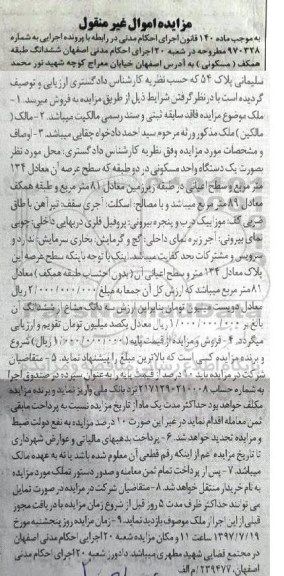 مزایده اموال غیر منقول
به موجب ماده ۱۴۰ قانون اجرای احکام مدنی در رابطه با پرونده اجرایی به شماره
۹۷۰۳۲۸ مطروحه در شعبه ۲۰ اجرای احکام مدنی اصفهان ششدانگ طبقه
همکف (مسکونی) به آدرس اصفهان خیابان معراج کوچه شهید نور محمد
سلیمانی پلاک ۵۴ که حسب نظریه کارشناس دادگستری ارزیابی و توصیف
گردیده است با در نظر گرفتن شرایط ذیل از طریق مزایده به فروش میرسد. ۱-
ملک موضوع مزایده فاقد سابقه ثبتی و سند رسمی مالکیت میباشد. ۲- مالک (
مالکین) ملک مذکور ورثه مرحوم سید احمد دادخواه حقایی میباشد. ۳- اوصاف
و مشخصات مورد مزایده وفق نظریه کارشناس دادگستری: محل مورد نظر
بصورت یک دستگاه واحد مسکونی در دو طبقه که سطح عرصه آن معادل ۱۳۴
متر مربع و سطح اعیانی در طبقه زیرزمین معادل ۸۱ متر مربع و طبقه همکف
معادل ۸۹ متر مربع میباشد و با مصالح: اسکلت: آجری سقف: تیرآهن با طاق
ضربی کف: موزاییک درب و پنجره بیرونی: پروفیل فلزی دربهایی داخلی: چوبی
نمای بیرونی: آجر زبره نمای داخلی: گچ و گرمایش: بخاری سرمایش: ندارد و
سرویس و مشترکات بحد کفایت میباشد. اینک با توجه با اینکه سطح عرصه این
پلاک معادل ۱۳۴ متر و سطح اعیانی آن (بدون احتساب طبقه همکف) معادل
۸۱ متر مربع میباشد که ارزش کل آن جمعا به مبلغ ۲/۰۰۰/۰۰۰/۰۰۰ ریال
معادل دویست میلیون تومان بنابراین ارزش سه دانگ مشاع از ششدانگ آن
بالغ بر ۱/۰۰۰/۰۰۰/۰۰۰ ریال معادل یکصد میلیون تومان تقویم و ارزیابی
میگردد. ۴- فروش و مزایده از قیمت پایه (۱/۰۰۰/۰۰۰/۰۰۰ ریال) شروع
و برنده مزایده کسی است که بالاترین مبلغ را پیشنهاد نماید. ۵- متقاضیان
شرکت در مزایده باید ۱۰ درصد از قیمت پایه را به عنوان سپرده در صندوق اجرا
به شماره حساب ۲۱۷۱۲۹۰۲۱۰۰۰۸ نزد بانک ملی واریز نماید و برنده مزایده
مکلف خواهد بود حداکثر مدت یک ماه از تاریخ مزایده نسبت به پرداخت مابقی
ثمن معامله اقدام نماید در غیر این صورت ۱۰ درصد مزایده به نفع دولت ضبط
و مزایده تجدید خواهد شد. ۶- پرداخت بدهیهای مالیاتی و عوارض شهرداری
تا تاریخ مزایده اعم از اینکه رقم قطعی آن معلوم شده باشد یا نه به عهده مالک
میباشد. ۷- پس از پرداخت تمام ثمن معامله و صدور دستور تملک مورد مزایده
به نام خریدار منتقل خواهد شد. ۸- متقاضیان شرکت در مزایده در صورت تمایل
می توانند حداکثر ظرف مدت ۵ روز قبل از شروع زمان مزایده با دریافت مجوز
قبلی از این اجرا از ملک موضوع بازدید نماید. ۹- زمان مزایده روز پنجشنبه مورخ
۱۳۹۷/۷/۱۹ ساعت ۱۱ و مکان مزایده شعبه ۲۰ اجرایی احکام مدنی اصفهان
در مجتمع قضایی شهید مطهری میباشد. دادورز شعبه ۲۰ اجرای احکام مدنی
اصفهان. ۲۳۹۴۷۷/م الف